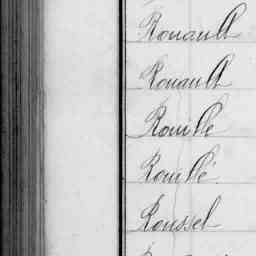 Rouault
Rouault
Rouillé
Rouillé
Roussel